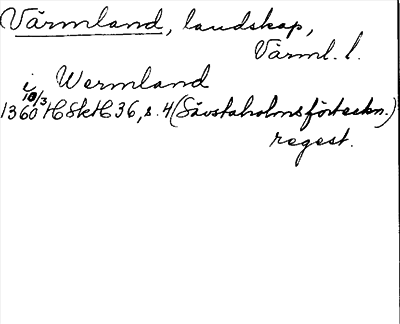 Värmland, landskap,
Värml. l.
i Wermland
1360 10/3 HSkH 36, s. 4 (Sävstaholmsförteckn.)
regest.